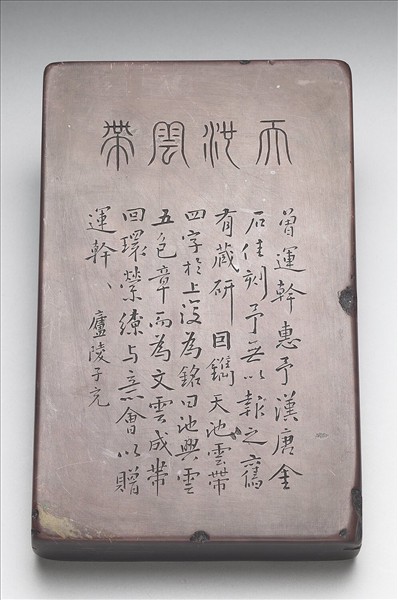 天池雲帶
曾運幹惠予漢唐金
石佳刻予無以報之舊
有藏研因鐫天池雲帶
四字於上復為銘曰池興雲
五色章而為文雲成帶
回環縈繚与意會以贈
運幹、廬陵子元